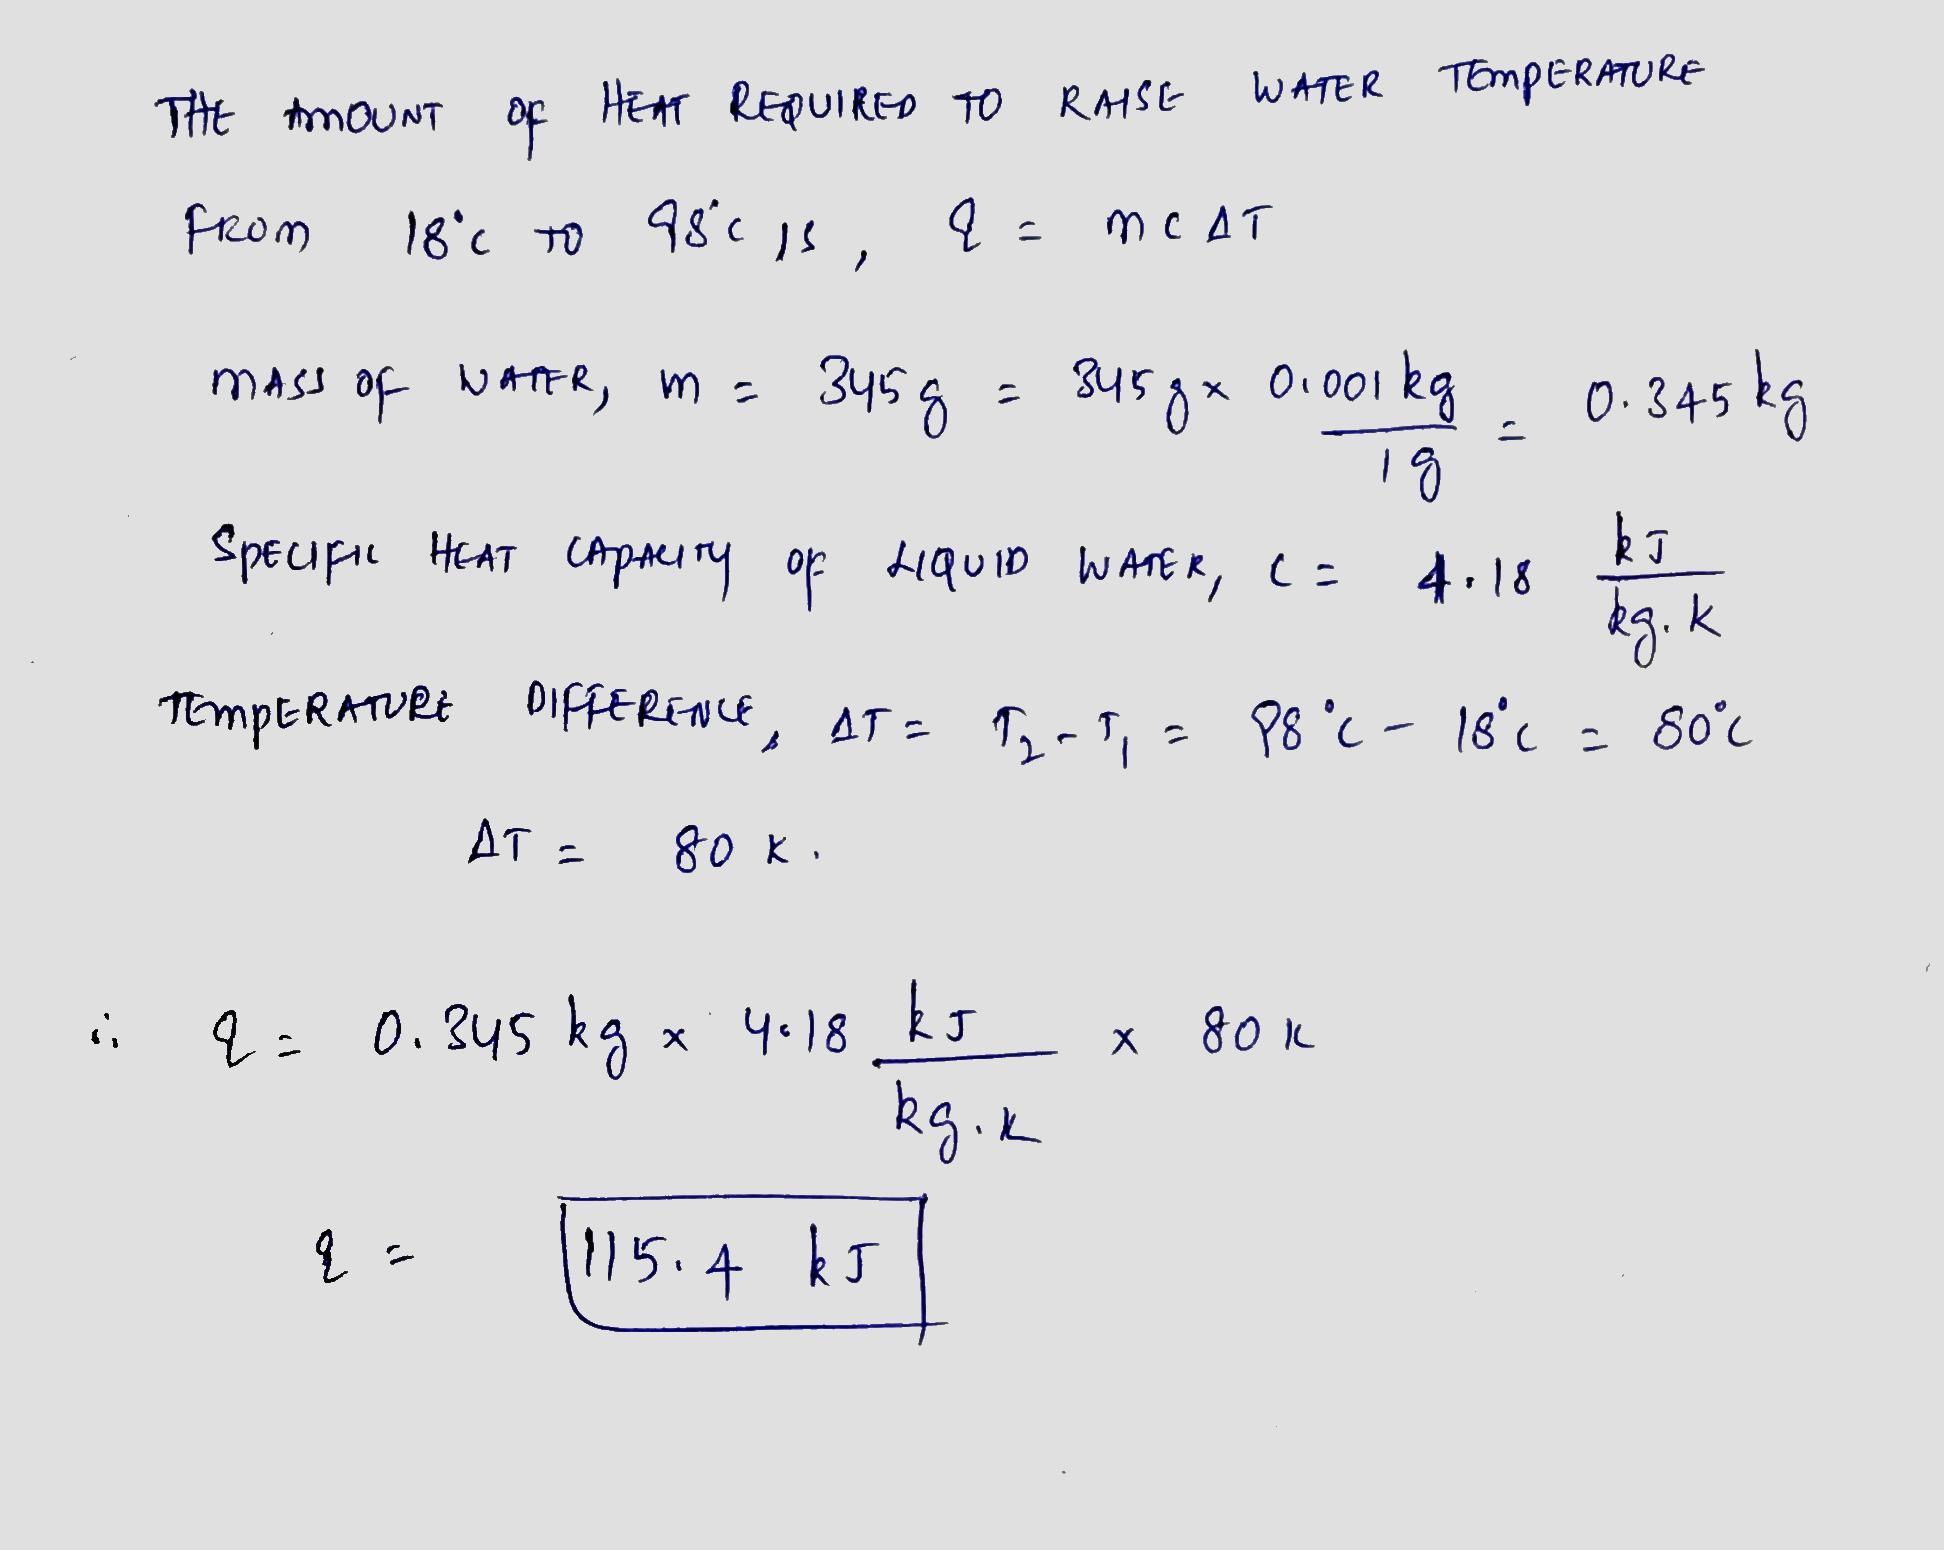 THE AMOUNT OF HEAT REQUIRED TO RAISE WATER TEMPERATURE
FROM 18°C TO 98°C IS, q = mcΔT
MASS OF WATER, m = 345g = 345g x 0.001 kg / 1g = 0.345 kg
SPECIFIC HEAT CAPACITY OF LIQUID WATER, C = 4.18 kJ / kg.K
TEMPERATURE DIFFERENCE, ΔT = T₂ - T₁ = 98°C - 18°C = 80°C
ΔT = 80 K.
∴ q = 0.345 kg x 4.18 kJ / kg.K x 80 K
q = 115.4 kJ